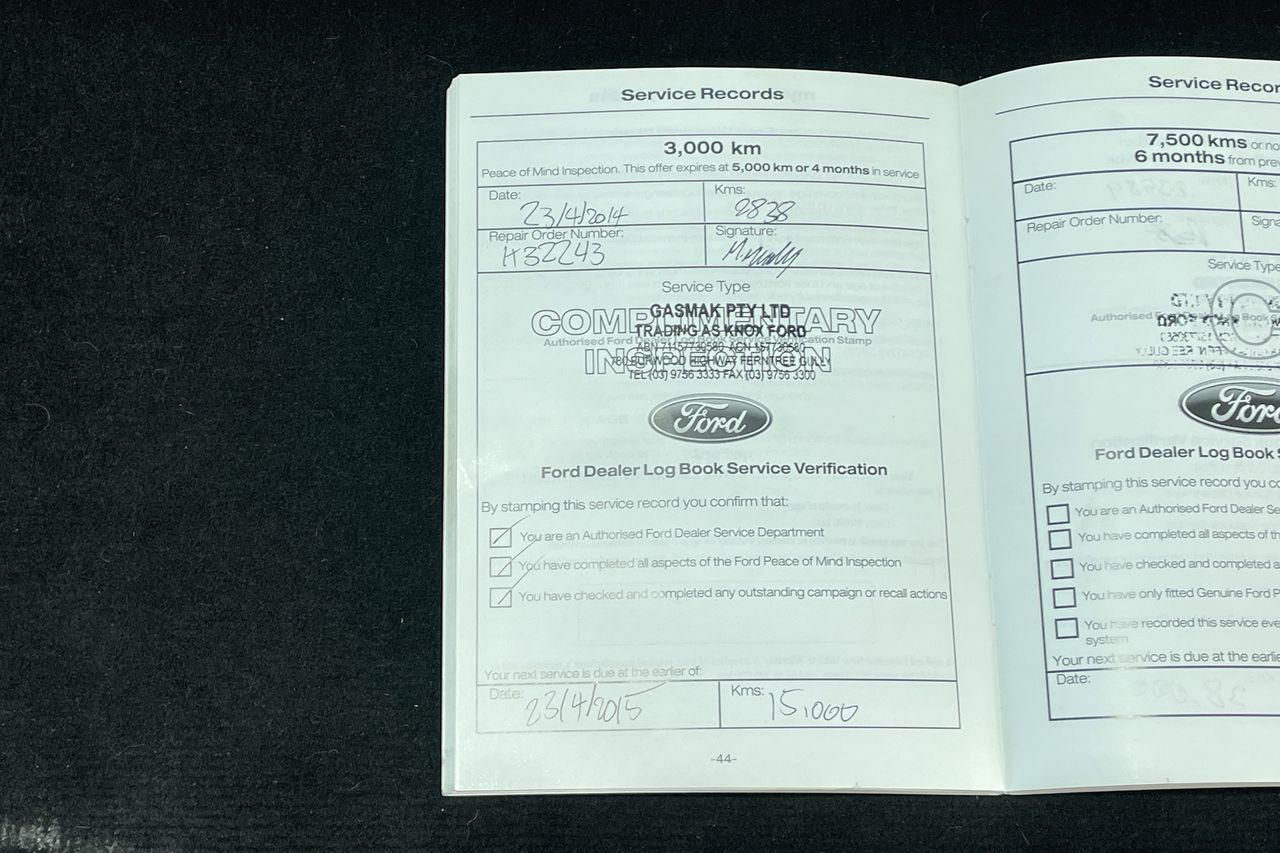 Service Records
3,000 km
Peace of Mind Inspection. This offer expires at 5,000 km or 4 months in service
Date: 23/4/2014
Kms: 2838
Repair Order Number: H32243
Signature:
Service Type
COMPLIMENTARY
INSPECTION
Authorised Ford Dealer Log Book Service Verification Stamp
GASMAK PTY LTD
TRADING AS KNOX FORD
780 BURWOOD HIGHWAY FERNTREE GULLY
TEL (03) 9756 3333 FAX (03) 9756 3300
Ford
Ford Dealer Log Book Service Verification
By stamping this service record you confirm that:
You are an Authorised Ford Dealer Service Department
You have completed all aspects of the Ford Peace of Mind Inspection
You have checked and completed any outstanding campaign or recall actions
Your next service is due at the earlier of:
Date: 23/4/2015
Kms: 15,000
-44-
Service Recor
7,500 kms or no
6 months from prev
Date:
Kms:
Repair Order Number:
Signa
Service Type
Authorised Ford Dealer Log Book
Ford
Ford Dealer Log Book S
By stamping this service record you co
You are an Authorised Ford Dealer Se
You have completed all aspects of th
You have checked and completed a
You have only fitted Genuine Ford P
You have recorded this service eve
system
Your next service is due at the earlie
Date: